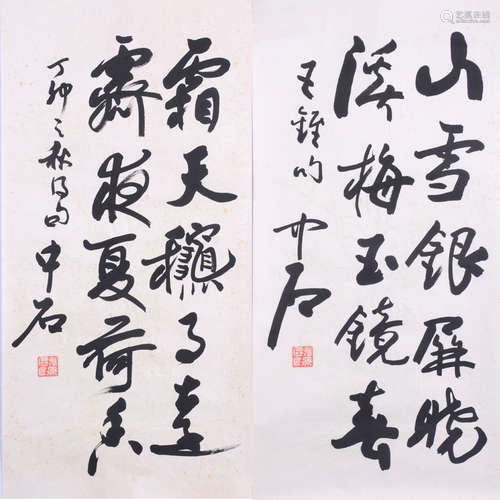 山雪银屏晓
溪梅玉镜春
王 句 中石
霜天龝月遠
霽夜夏荷香
丁卯之秋得句 中石